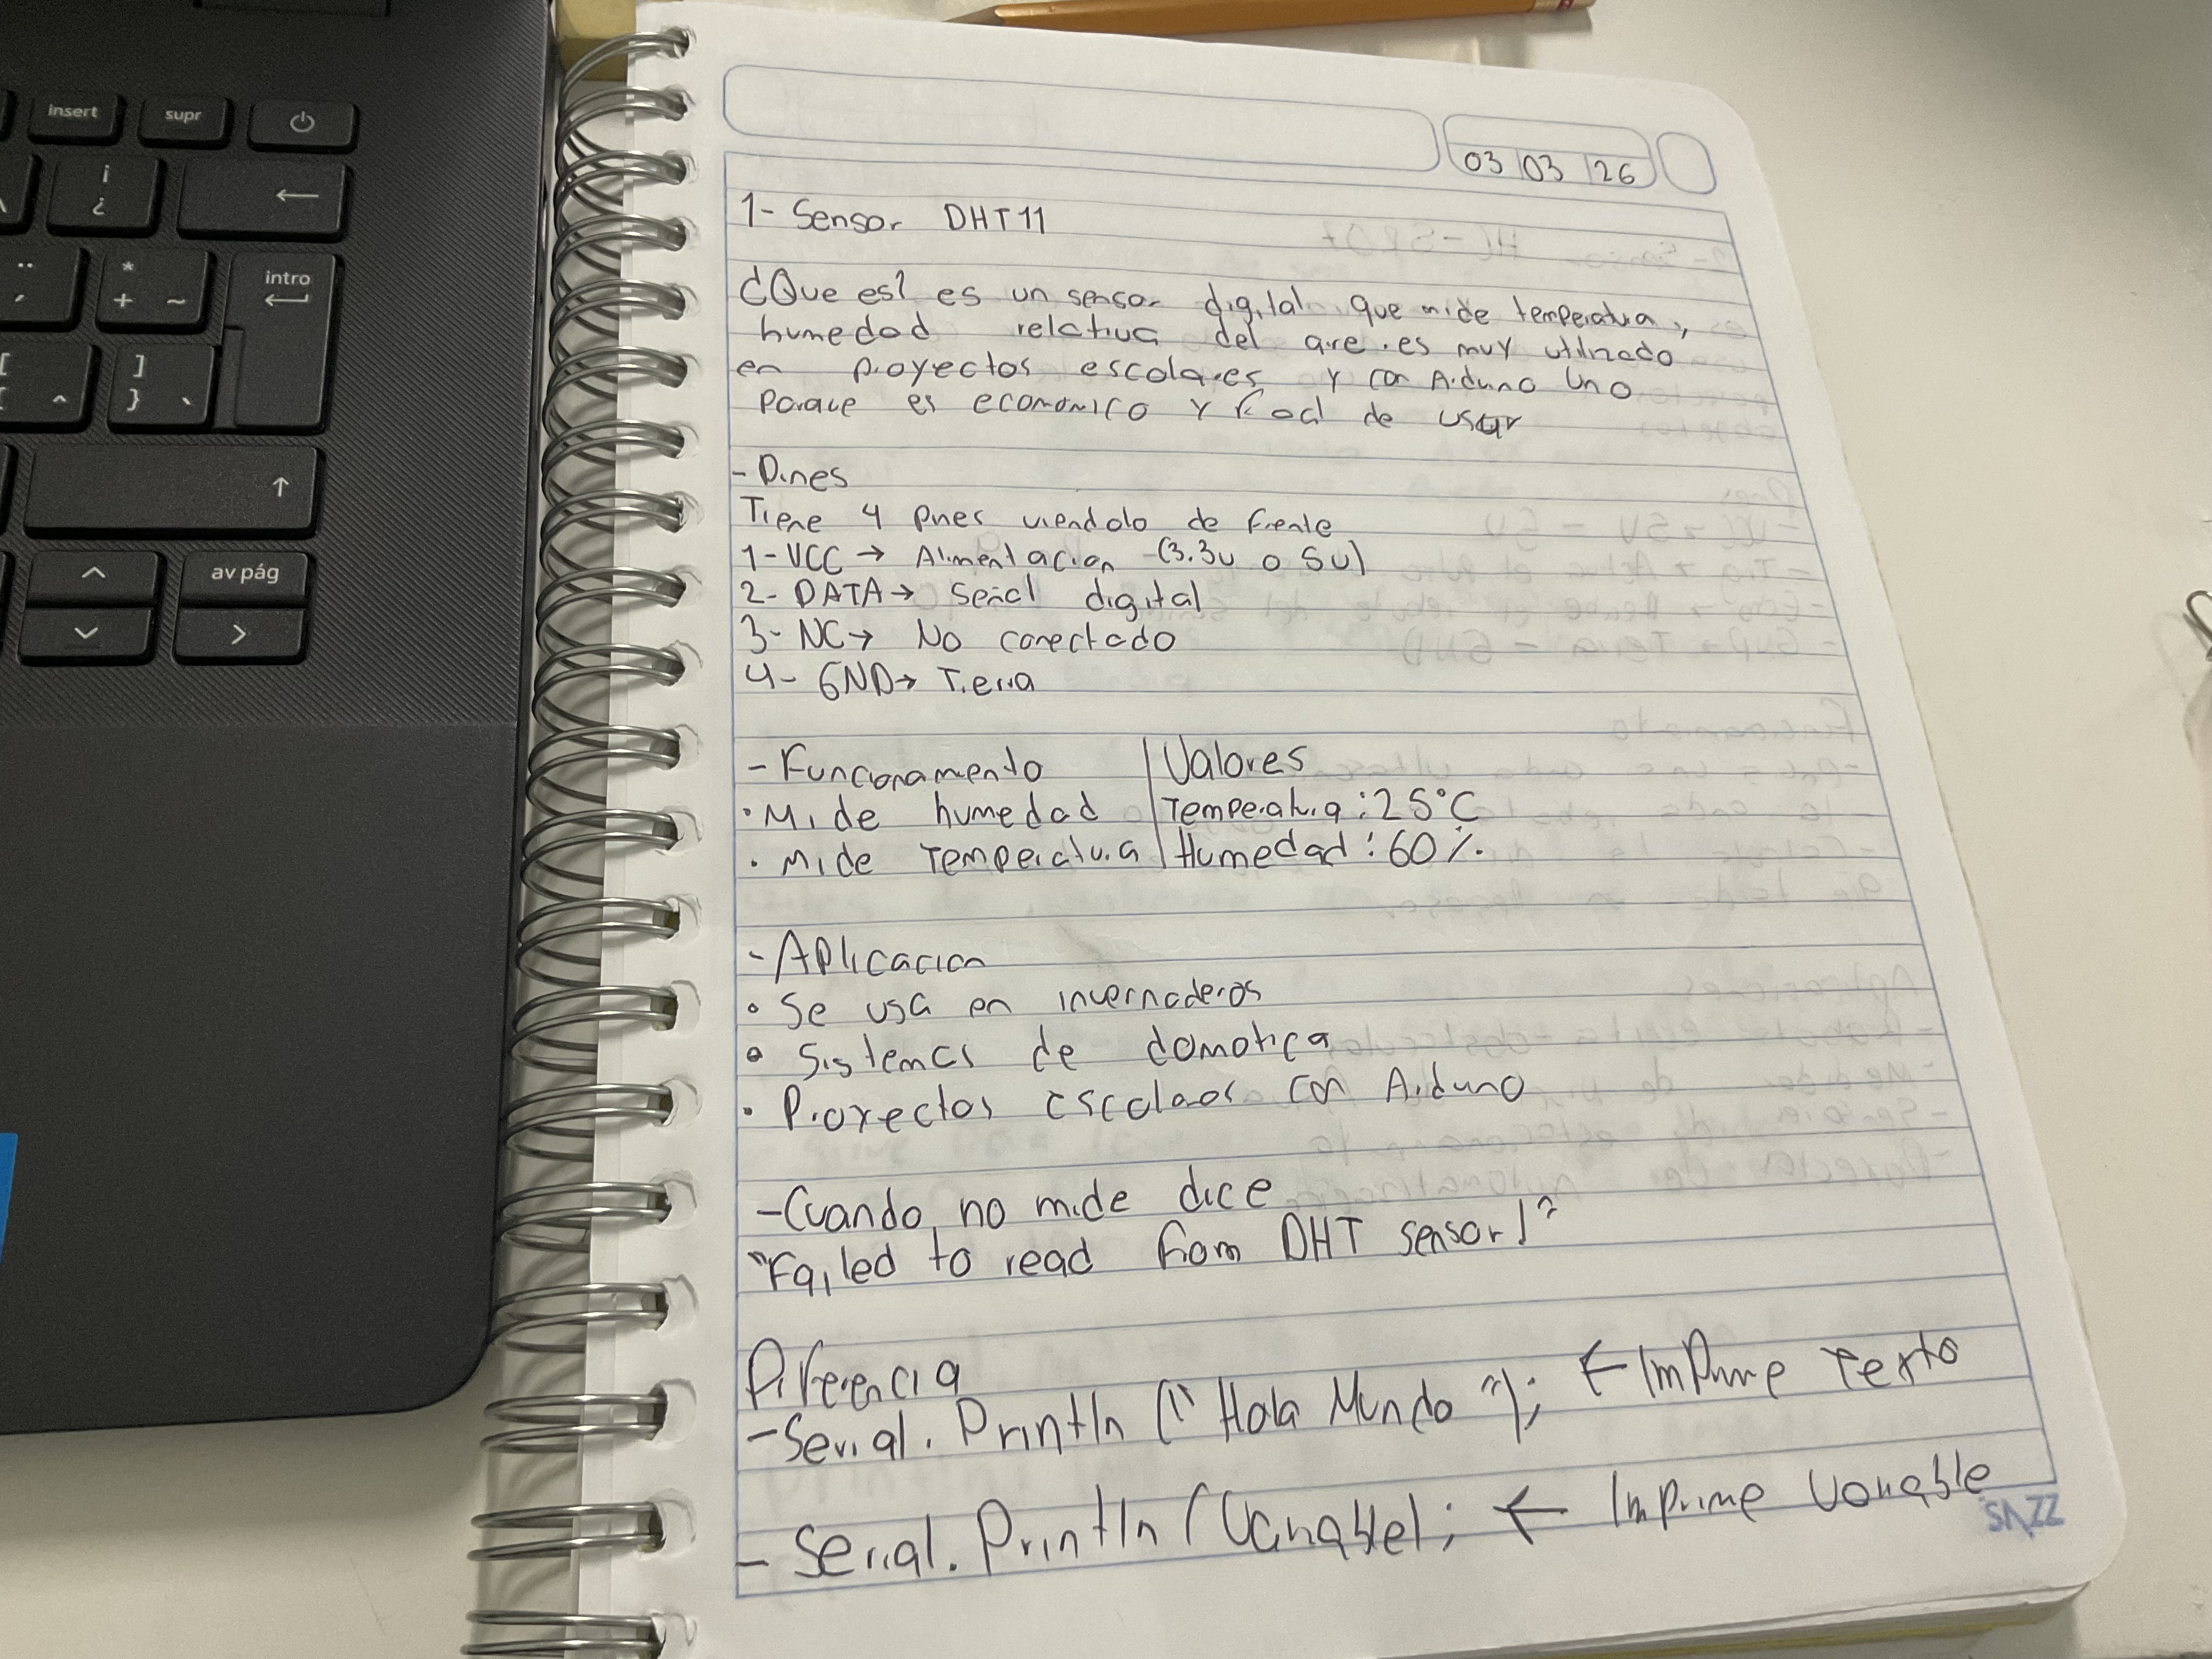 insert
supr
intro
av pág
03 03 26
1- Sensor DHT11
¿Que es? es un sensor digital que mide temperatura,
humedad relativa del aire. es muy utilizado
en proyectos escolares y con Arduino Uno
Porque es economico y facil de usar
- Pines
Tiene 4 pines viendolo de frente
1- VCC → Alimentacion - (3.3v o 5v)
2- DATA → Señal digital
3- NC → No conectado
4- GND → Tierra
- Funcionamiento | Valores
• Mide humedad | Temperatura : 25°C
• mide Temperatura | Humedad : 60%
- Aplicacion
• Se usa en invernaderos
• Sistemas de domotica
• Proyectos escolares con Arduino
- Cuando no mide dice
"Failed to read from DHT sensor!"
Diferencia
- Serial. Println ("Hola Mundo"); ← Imprime Texto
- Serial. Println (Variable); ← Imprime Variable